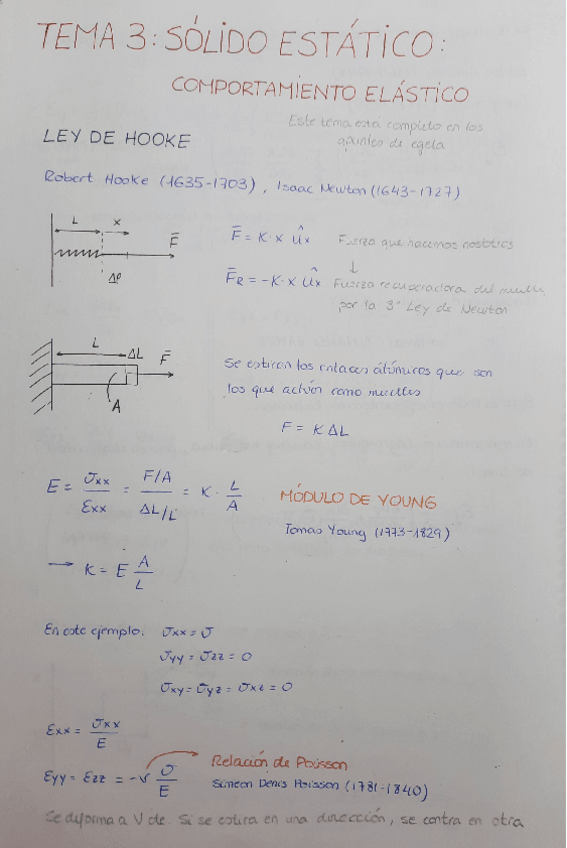 TEMA 3: SÓLIDO ESTÁTICO:
COMPORTAMIENTO ELÁSTICO
Este tema está completo en los
apuntes de egela
LEY DE HOOKE
Robert Hooke (1635-1703), Isaac Newton (1643-1727)
L x F̄
Δl
F̄ = K · x ûx Fuerza que hacemos nosotros
↓
F̄R = -K · x ûx Fuerza recuperadora del muelle
por la 3ª Ley de Newton
L ΔL F̄
A
Se estiran los enlaces atómicos que son
los que actúan como muelles
F = K ΔL
E = σxx / εxx = F/A / ΔL/L = K · L / A
MÓDULO DE YOUNG
Tomas Young (1773-1829)
→ K = E A / L
En este ejemplo: σxx = σ
σyy = σzz = 0
σxy = σyz = σxz = 0
εxx = σxx / E
Relación de Poisson
εyy = εzz = -ν σ / E
Simeon Denis Poisson (1781-1840)
Se deforma a V cte. Si se estira en una dirección, se contra en otra